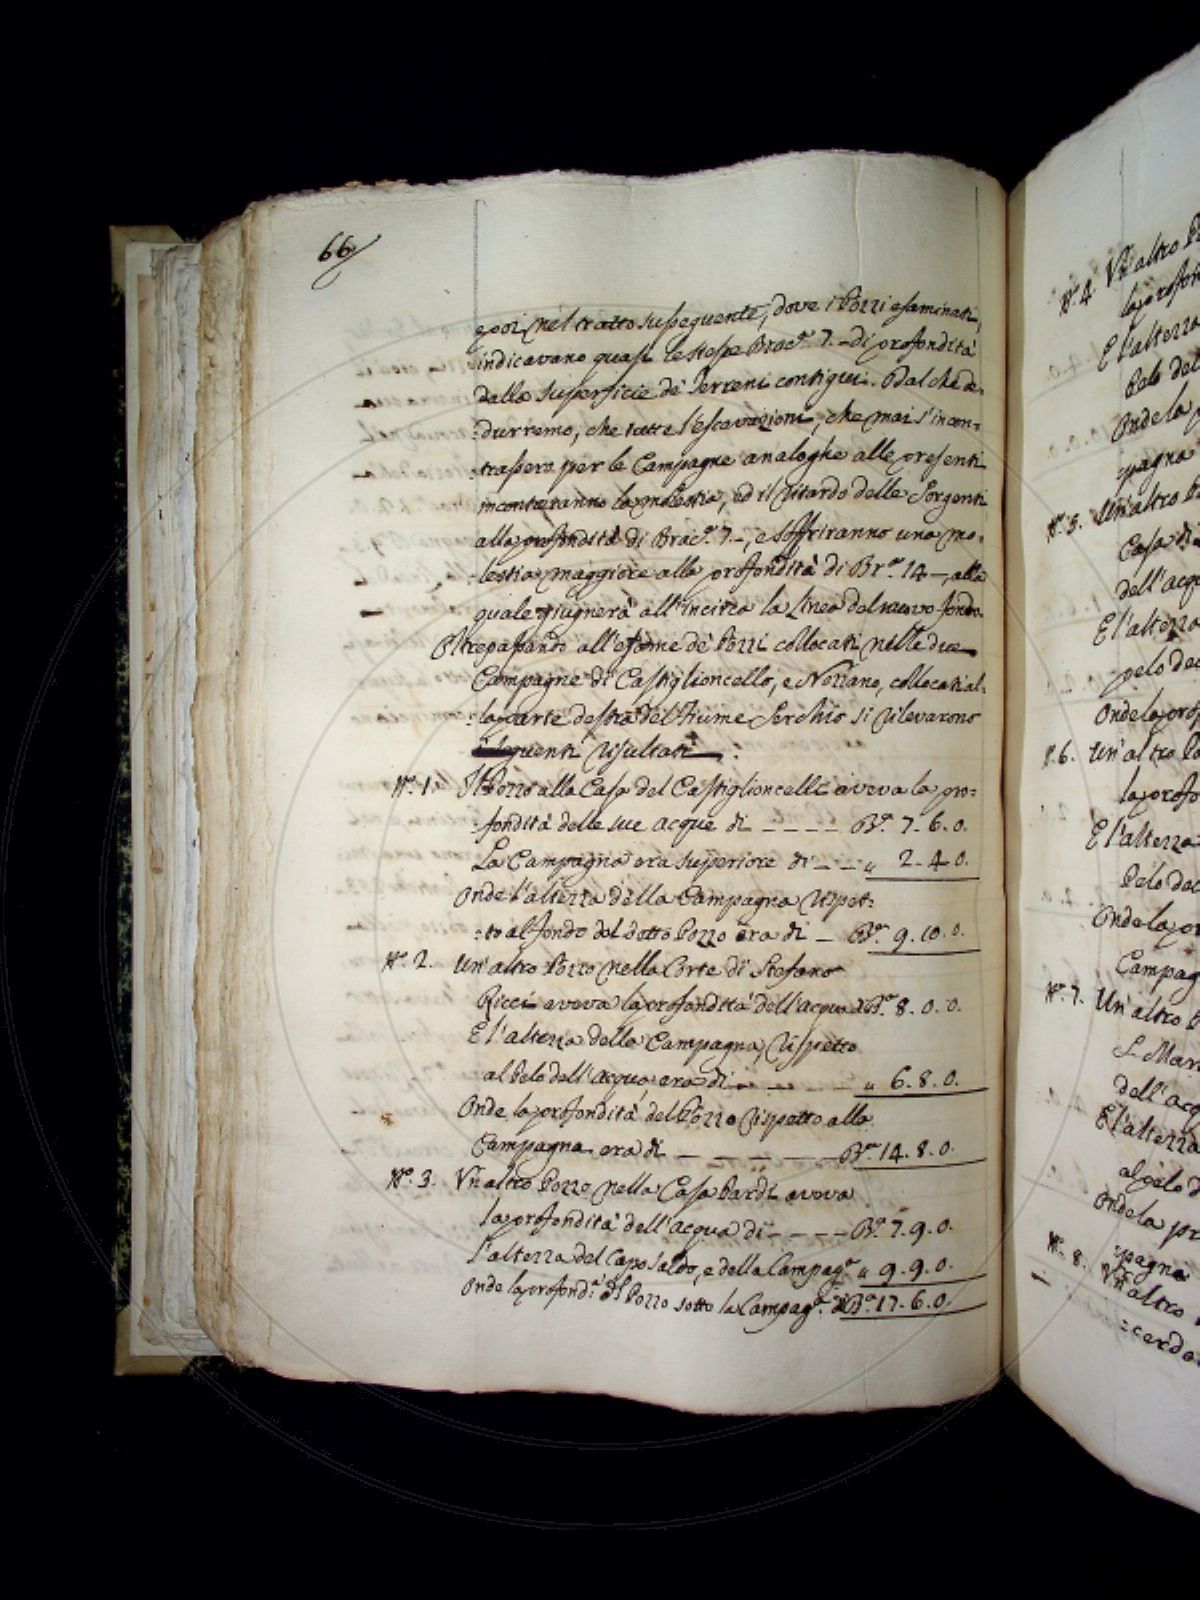 66
e poi nel tratto susseguente, dove i Pozzi esaminati,
indicavano quasi le stesse Brac.ª 7.- di profondità
dalla superficie de' Terreni contigui. Dal che de-
:durremo, che tutte l'escavazioni, che mai s'incon=
:trassero per le Campagne analoghe alle presenti
incontreranno la molestia, ed il ritardo delle Sorgenti
alla profondità di Brac.ª 7.-, e soffriranno una mo-
:lestia maggiore alla profondità di Br.ª 14 -, alla
quale giugnerà all'incirca la Linea del nuovo fondo.
Oltrepassando all'esame de' Pozzi collocati nelle due
Campagne di Castiglioncello, e Nozzano, collocati al-
:la parte destra del Fiume Serchio si rilevarono
i seguenti risultati:
N.º 1. Il Pozzo alla Casa del Castiglioncelli aveva la pro=
:fondità delle sue acque di - - - - B.ª 7. 6. 0.
La Campagna era superiore di - - " 2. 4. 0.
Onde l'altezza della Campagna rispet:
:to al fondo del detto Pozzo era di - B.ª 9. 10. 0.
N.º 2. Un'altro Pozzo nella Corte di Stefano
Ricci aveva la profondità dell'acqua di B.ª 8. 0. 0.
E l'altezza della Campagna, rispetto
al Pelo dell'acqua, era di - - - - " 6. 8. 0.
Onde la profondità del Pozzo rispetto alla
Campagna era di - - - - - B.ª 14. 8. 0.
N.º 3. Un altro Pozzo nella Casa Pardi aveva
la profondità dell'acqua di - - - - B.ª 7. 9. 0.
l'altezza del Caposaldo, e della Campag.ª " 9. 9. 0.
Onde la profond.ª del Pozzo sotto la Campag.ª di B.ª 17. 6. 0.
N.º 4. Un altro
la profon
E l'altezza
Pelo del
Onde la
:pagna
N.º 5. Un'altro
Casa
dell'acq
E l'altezza
pelo dec
Onde la prof
N.º 6. Un'altro
la profo
E l'altezza
Pelo dec
Onde la pr
Campag
N.º 7. Un'altro
S. Mar
dell'acq
E l'altezza
al pelo d
Onde la pr
:pagna
N.º 8. Un altro
:cerdo